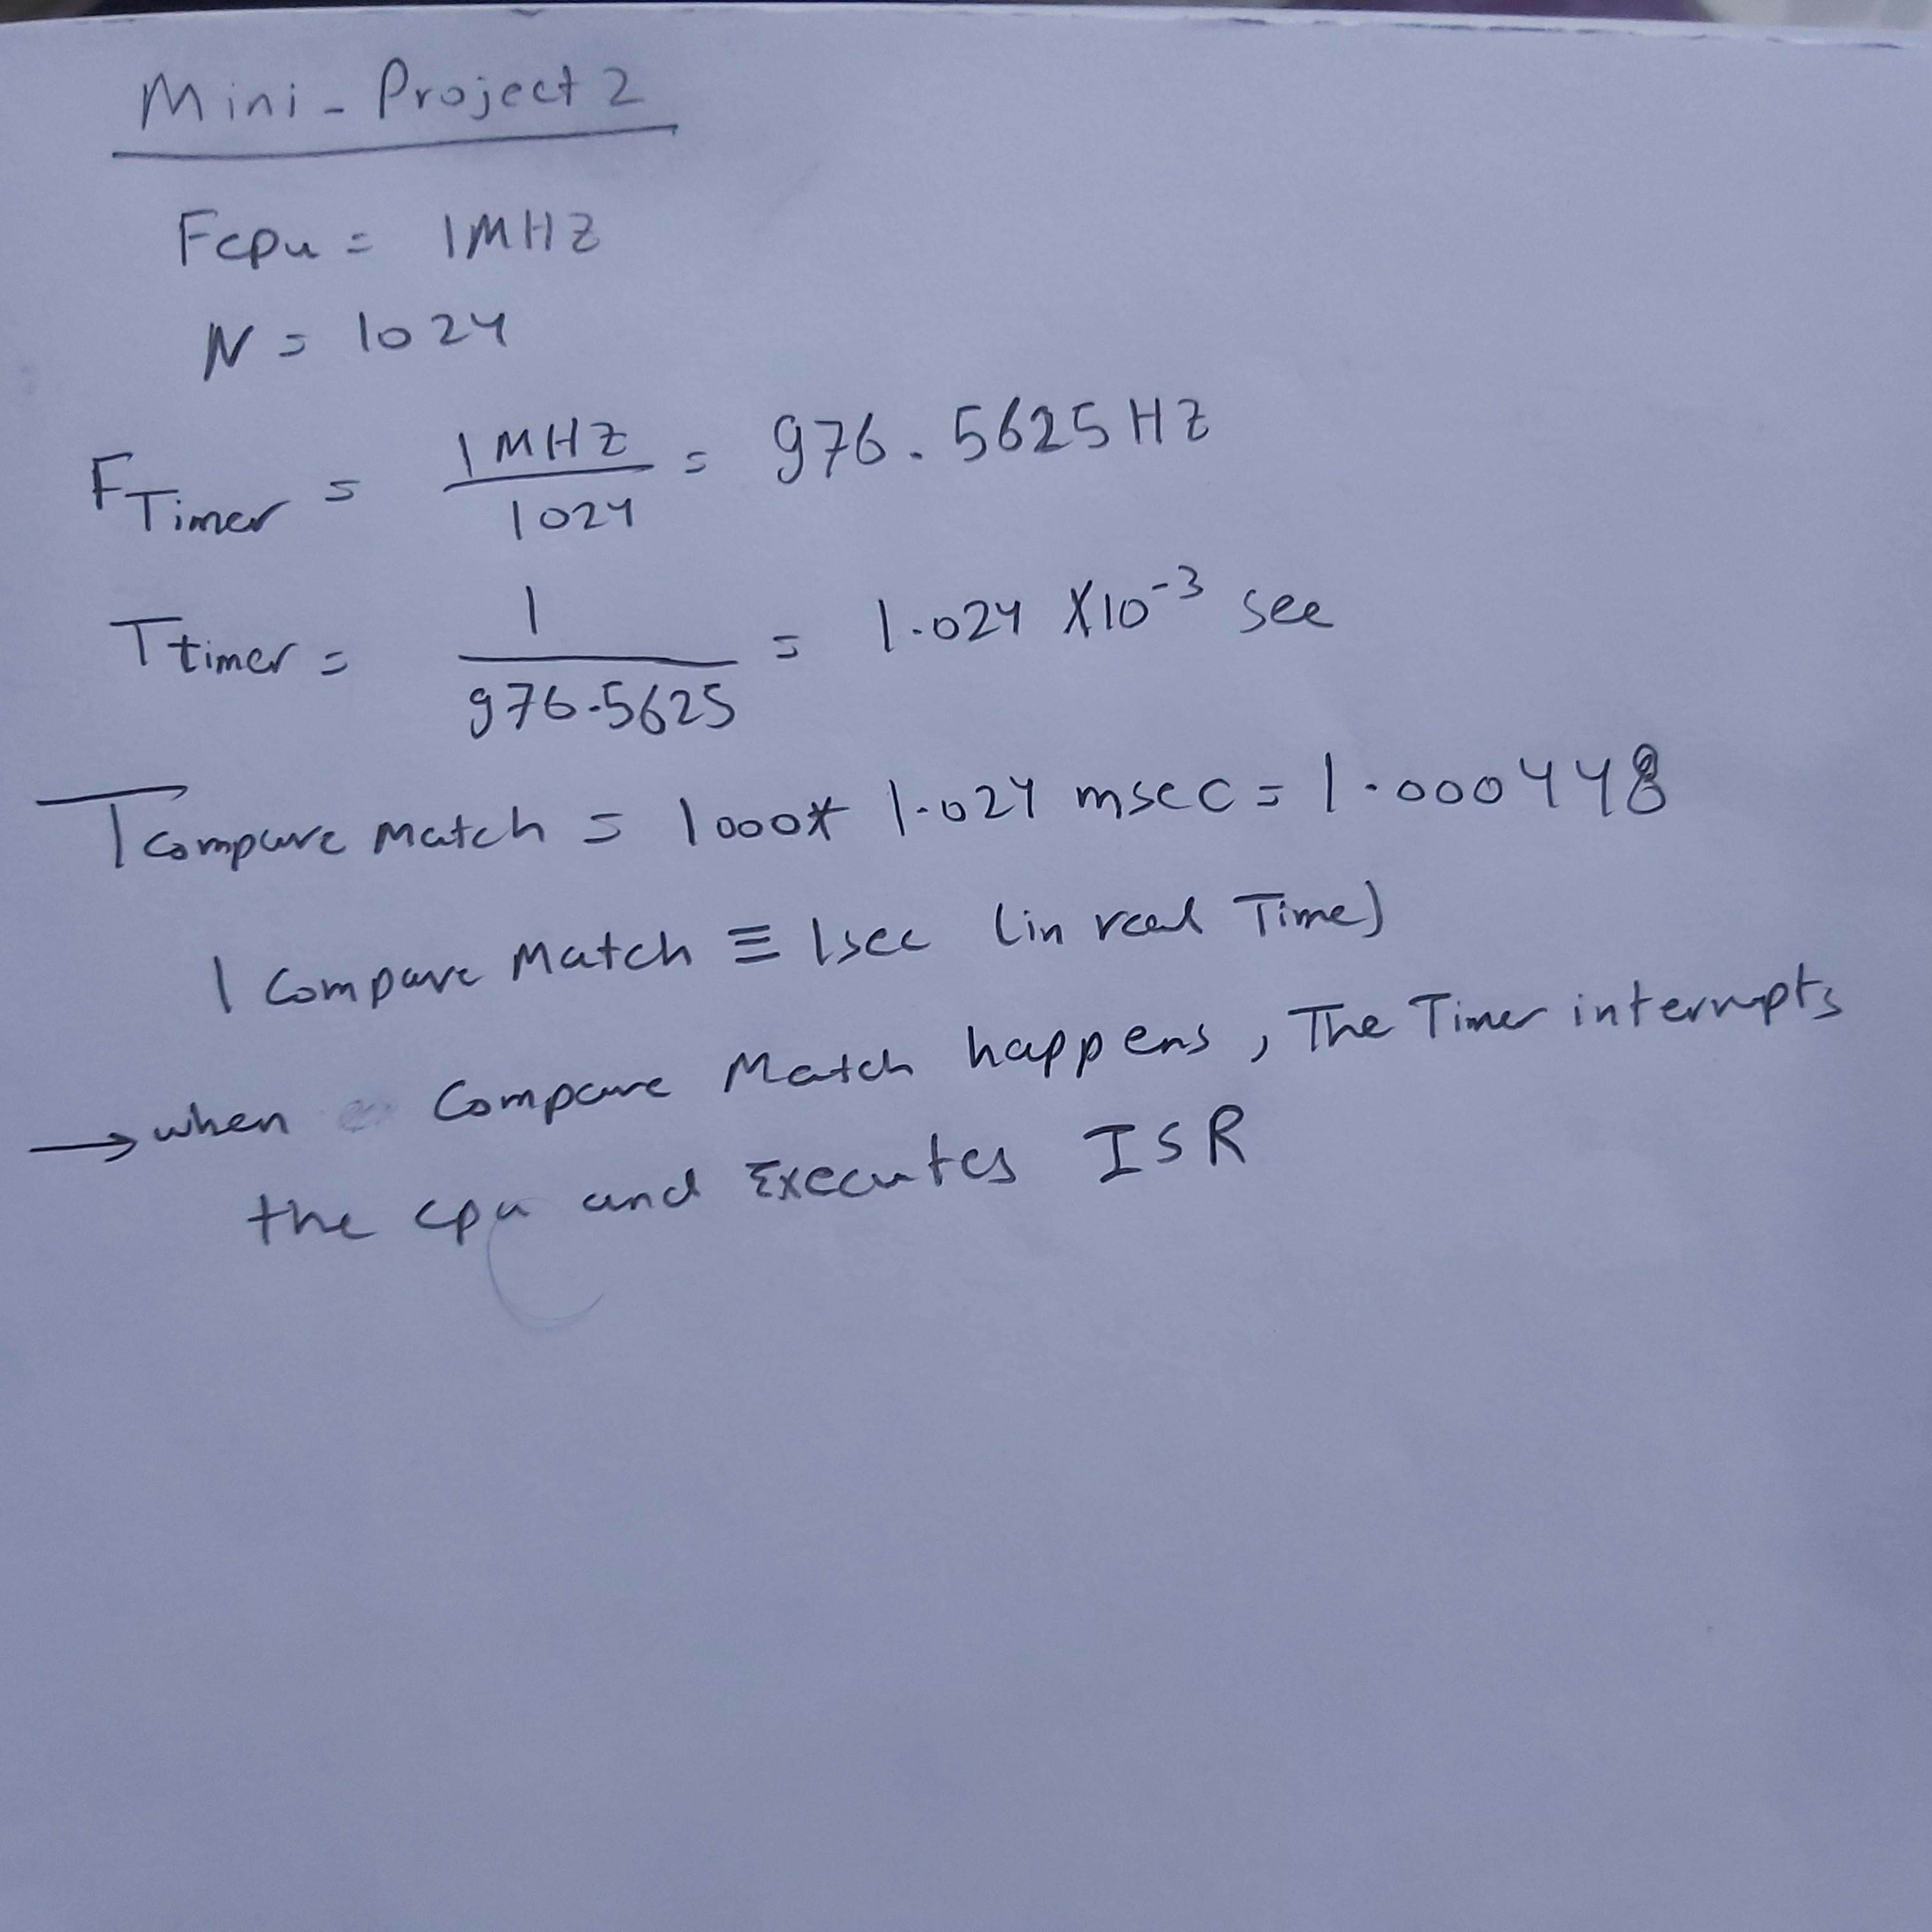 Mini-Project 2
Fcpu = 1MHZ
N = 1024
F Timer = 1MHZ / 1024 = 976.5625HZ
T timer = 1 / 976.5625 = 1.024 X10^-3 sec
T Compare Match = 1000* 1.024 msec = 1.000448
1 Compare Match ≡ 1sec (in real Time)
→ when Compare Match happens, The Timer interrupts
the cpu and Executes ISR